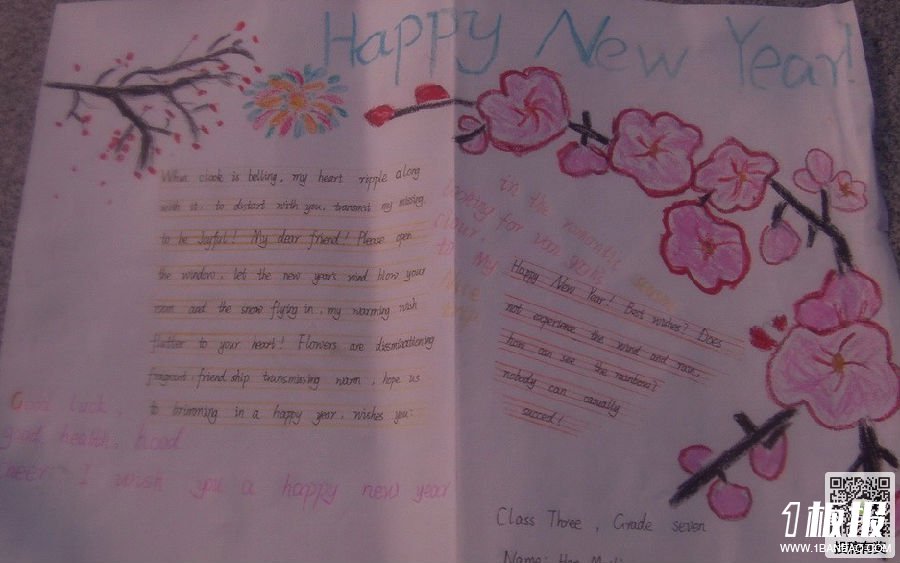 Happy New Year!
When clook is belling, my heart ripple along
with it. to distort with you, transmit my missing.
to be Joyful! My dear friend! Please open
the window, let the new year's wind blow your
room and the snow flying in, my warming wish
flutter to your heart! Flowers are dissminationg
fragrant, friendship transmissing warm, hope us
to brimming in a happy year, wishes you:
Good luck,
good health, hood
cheer I wish you a happy new year
in the romantic
season
looking for you
to My
Happy New Year! Best wishes? Does
not experience the wind and rain,
how can see the rainbow?
nobody can casually
succed!
Class Three, Grade seven
Name:
1板报
WWW.1BANBAO.COM